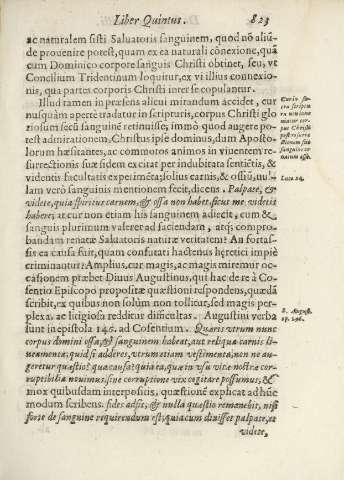 Liber Quintus. 823
ac naturalem sisti Saluatoris sanguinem, quod nō aliū-
de prouenire potest, quam ex ea naturali cōnexione, quā
cum Dominico corpore sanguis Christi obtinet, seu, vt
Concilium Tridentinum loquitur, ex vi illius connexio-
nis, qua partes corporis Christi inter se copulantur.
Illud tamen in præsens alicui mirandum accidet, cur
nusquàm apertè tradatur in scripturis, corpus Christi glo
riosum secū sanguinē retinuisse, immò quod augere po-
test admirationem, Christus ipse dominus, dum Aposto-
lorum hæsitantes, ac commotos animos in viuentem re-
surrectionis suæ fidem excitat per indubitata sentiētis, &
videntis facultatis experimēta; solius carnis, & ossiū, nul-
lam verò sanguinis mentionem fecit, dicens. Palpate, &
videte, quia spiritus carnem, & ossa non habet, sicut me videtis
habere: at cur non etiam his sanguinem adiecit, cum &
sanguis plurimum valeret ad faciendam, atq; compro-
bandam renatæ Saluatoris naturæ veritatem? An fortas-
sis ea causa fuit, quam confutati hactenus hęretici impiè
criminantur? Amplius, cur magis, ac magis miremur oc-
casionem præbet Diuus Augustinus, qui hac de re à Co-
sentio Episcopo propositæ quæstioni respondens, quædā
scribit, ex quibus non solùm non tollitur, sed magis per-
plexa, ac litigiosa redditur difficultas. Augustini verba
sunt in epistola 146. ad Cosentium. Quæris vtrum nunc
corpus domini ossa, & sanguinem habeat, aut reliqua carnis li-
neamēta; quid si adderes, vtrum etiam vestimenta, non ne au-
geretur quæstio? qua causa? quia ea, quæ in vsu vitæ nostræ cor-
ruptibiliæ nouimus, sine corruptione vix cogitare possumus, &
mox quibusdam interpositis, quæstionē explicat ad hūc
modum scribens. fides adsit, & nulla quæstio remanebit, nisi
forte de sanguine requirendum est; quia cum dixisset palpate, et
videte,
Cur in sa-
cra scriptu
ra nō tam
Luca 24.
S. August.
ep. 146.